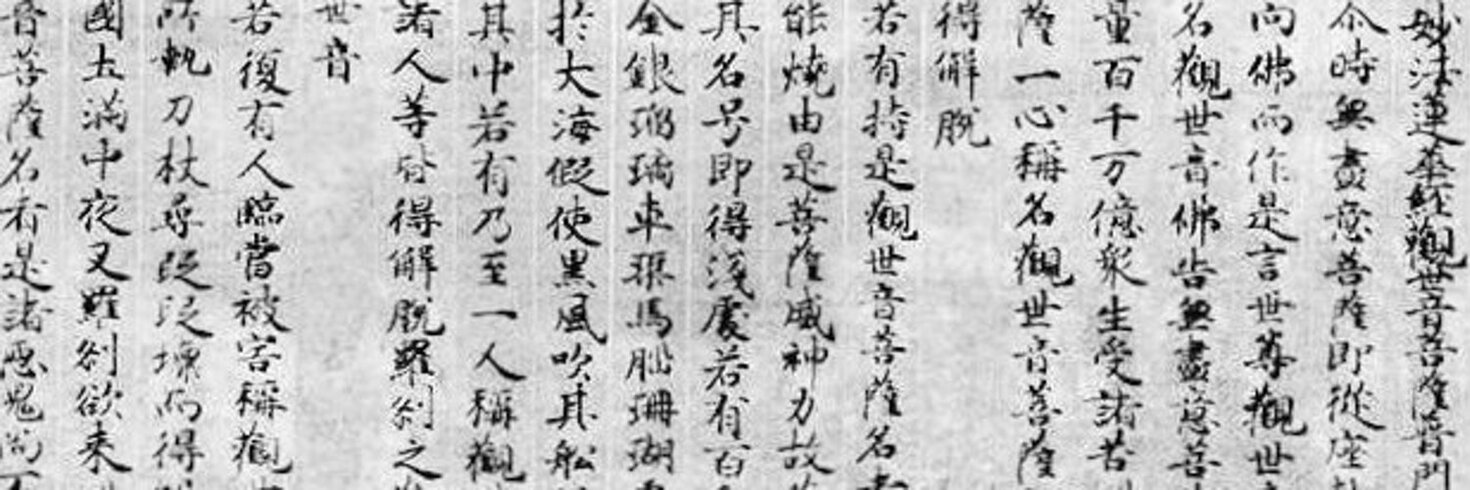 妙法蓮華經觀世音菩薩普門
尒時無盡意菩薩即從座
向佛而作是言世尊觀世
名觀世音佛告無盡意菩
量百千万億衆生受諸苦
薩一心稱名觀世音菩薩
得解脫
若有持是觀世音菩薩名
能燒由是菩薩威神力故
其名号即得淺處若有百
金銀琉璃車璖馬𦛨珊瑚
於大海假使黑風吹其舩
其中若有乃至一人稱觀
諸人等皆得解脫羅刹之
世音
若復有人臨當被害稱觀
所執刀杖尋段段壞而得
國土滿中夜叉羅刹欲来
音菩薩名者是諸惡鬼尚